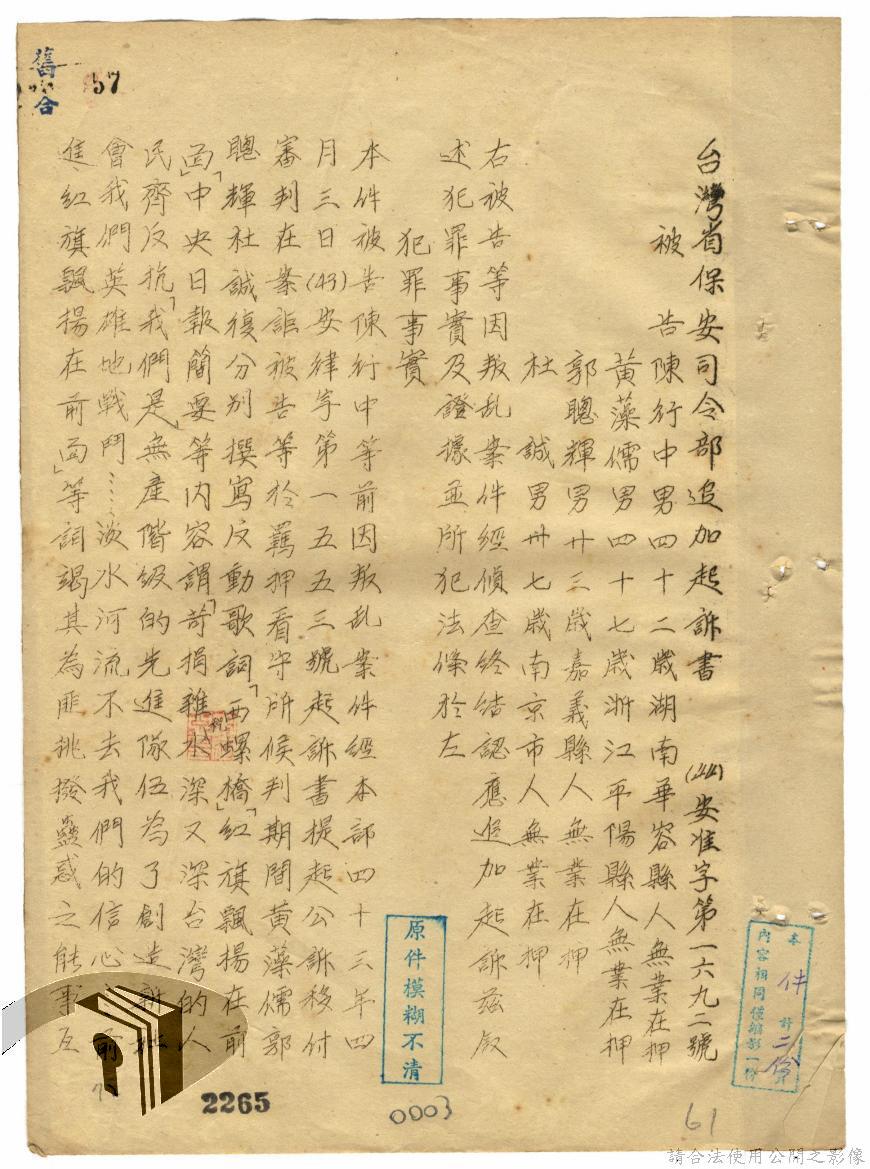 台灣省保安司令部追加起訴書
(44)安准字第一六九二號
被告陳行中男四十二歲湖南華容縣人無業在押
黃藻儒男四十七歲浙江平陽縣人無業在押
郭聰輝男廿三歲嘉義縣人無業在押
杜誠男卅七歲南京市人無業在押
右被告等因叛乱案件經偵查終結認應追加起訴茲敘
述犯罪事實及證據並所犯法條於左
犯罪事實
本件被告陳行中等前因叛乱案件經本部四十三年四
月三日(43)安律字第一五五三號起訴書提起公訴移付
審判在案詎被告等於羈押看守所候判期間黃藻儒郭
聰輝杜誠復分別撰寫反動歌詞「西螺橋」「紅旗飄揚在前
面」「中央日報簡要」等內容謂「苛捐雜稅水深又深台灣的人
民齊反抗」「我們是無產階級的先進隊伍為了創造新社
會我們英雄地戰鬥……淡水河流不去我們的信心
進、紅旗飄揚在前面」等詞竭其為匪挑撥蠱惑之能事互
舊
合
57
原件模糊不清
本件計二份
內容相同僅縮影一份
2265
0003
61
請合法使用公開之影像